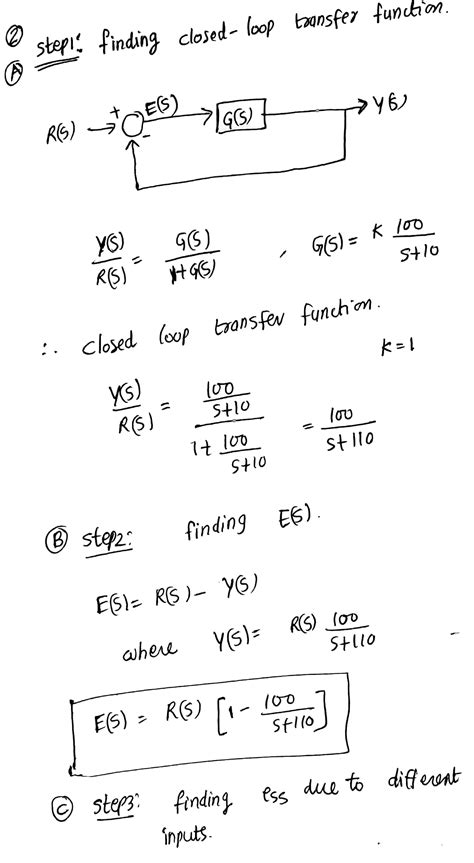 ② step1: finding closed-loop transfer function.
Ⓐ
R(s) + - E(s) G(s) Y(s)
Y(s)/R(s) = G(s)/(1+G(s)) , G(s) = K 100/(s+10)
∴ closed loop transfer function.
K=1
Y(s)/R(s) = (100/(s+10))/(1+ 100/(s+10)) = 100/(s+110)
Ⓑ step2: finding E(s).
E(s) = R(s) - Y(s)
where Y(s) = R(s) 100/(s+110)
E(s) = R(s) [1 - 100/(s+110)]
Ⓒ step3: finding ess due to different
inputs.